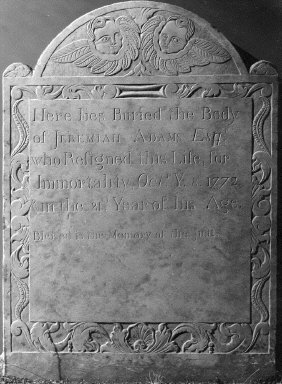 Here lies Buried the Body
of JEREMIAH ADAMS Esqr
who Resigned this Life for
Immortality Octr Ye 1772
& in the Year of his Age.
Blessed is the Memory of the Just